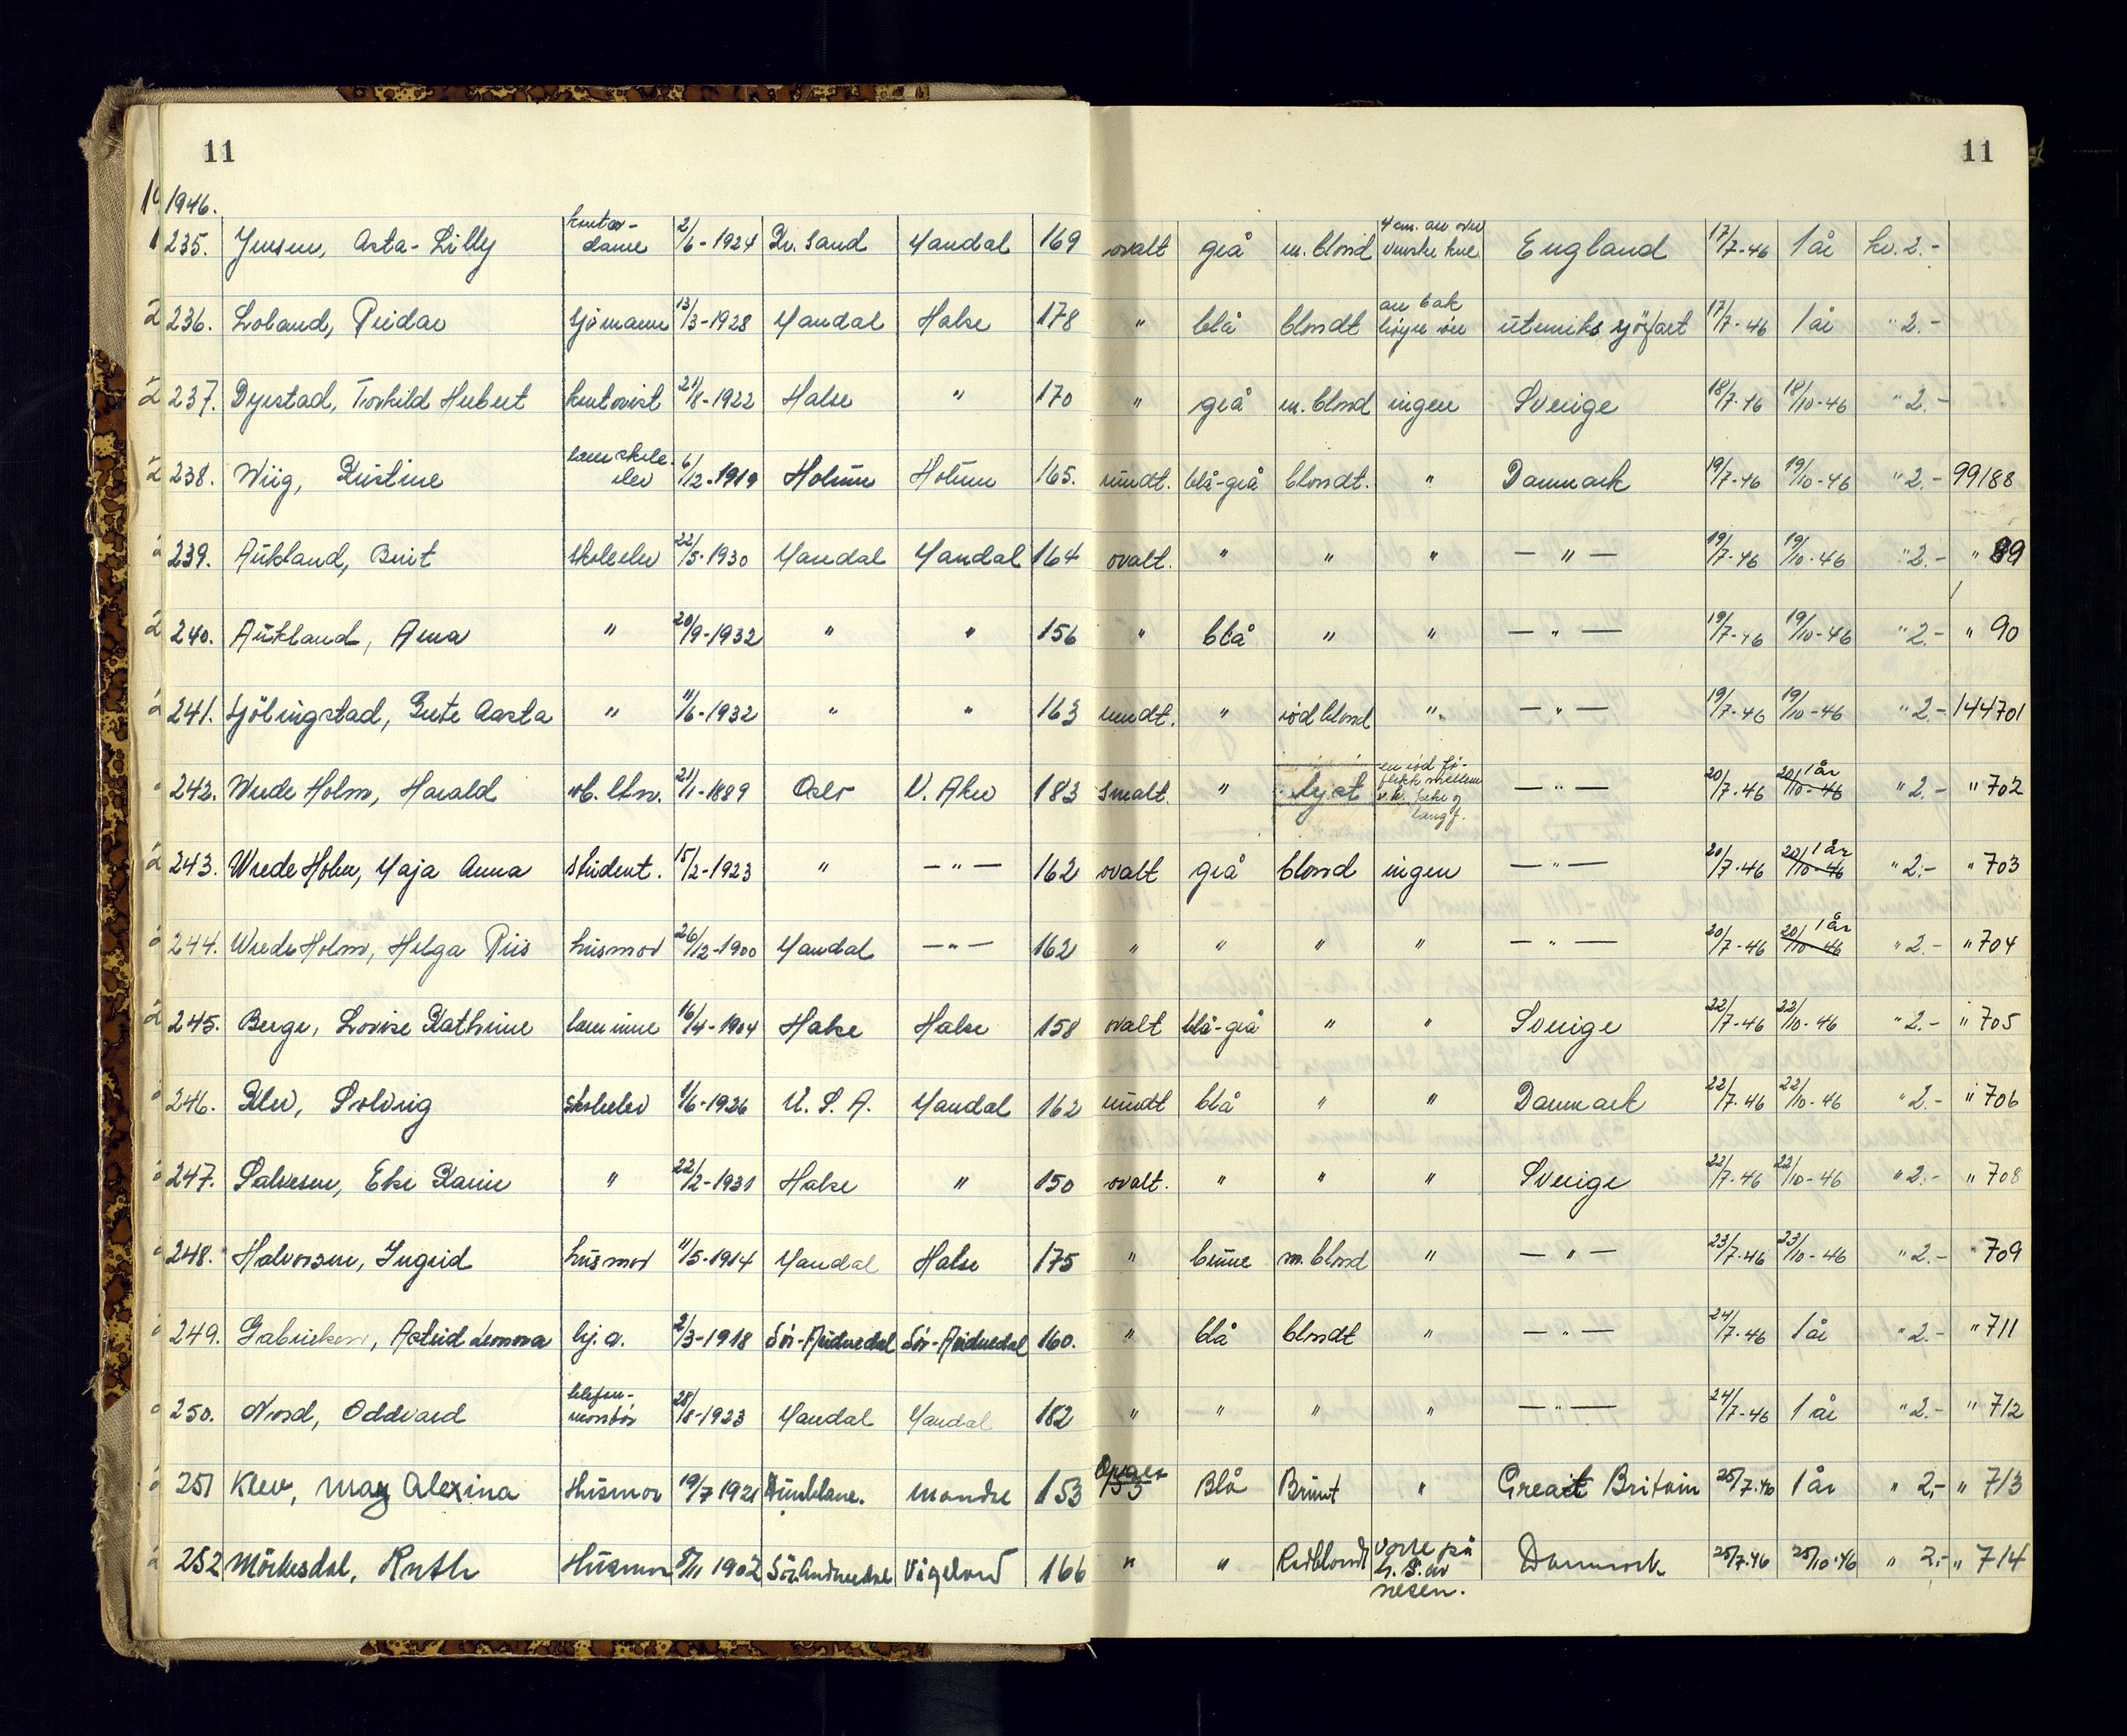 11 11
1946.
235. Jensen, Asta-Lilly kontor-dame 2/6-1924 Kr. Sand Mandal 169 ovalt grå m. blond 4 cm. arr over venstre kne England 17/7-46 1 år kr. 2.-
236. Loland, Reidar sjömann 13/3-1928 Mandal Halse 178 " blå blondt arr bak höyre øre utenriks sjöfart 17/7-46 1 år " 2.-
237. Dyrstad, Torkild Herbert kontorist 21/8-1922 Halse " 170 " grå m. blond ingen Sverige 18/7-46 18/10-46 " 2.-
238. Wiig, Kristine lærerskole elev 6/12-1919 Holum Holum 165. rundt. blå-grå blondt. " Danmark 19/7-46 19/10-46 " 2.- 99188
239. Aukland, Berit skoleelev 22/5-1930 Mandal Mandal 164 ovalt. " " " — " — 19/7-46 19/10-46 " 2.- " 89
240. Aukland, Anna " 20/9-1932 " " 156 " blå " " — " — 19/7-46 19/10-46 " 2.- " 90
241. Sjölingstad, Grete Aasta " 11/6-1932 " " 163 rundt. " rød blond " — " — 19/7-46 19/10-46 " 2.- 144701
242. Wrede Holm, Harald 21/1-1889 Oslo V. Aker 183 smalt. " lyst en rød fø-flekk mellem v.h. peke og langf. — " — 20/7-46 20/10-46 1 år " 2.- " 702
243. Wrede Holm, Maja Anna student. 15/2-1923 " — " — 162 ovalt grå blond ingen — " — 20/7-46 20/10-46 1 år " 2.- " 703
244. Wrede Holm, Helga Riis husmor 26/12-1900 Mandal — " — 162 " " " " — " — 20/7-46 20/10-46 1 år " 2.- " 704
245. Berge, Lovise Kathrine lærerinne 16/4-1904 Halse Halse 158 ovalt blå-grå " " Sverige 22/7-46 22/10-46 " 2.- " 705
246. Klev, Solveig skoleelev 1/6-1926 U.S.A. Mandal 162 rundt blå " " Danmark 22/7-46 22/10-46 " 2.- " 706
247. Salvesen, Else Karin " 22/2-1931 Halse " 150 ovalt. " " " Sverige 22/7-46 22/10-46 " 2.- " 708
248. Halvorsen, Ingrid husmor 11/5-1914 Mandal Halse 175 " brune m. blond " — " — 23/7-46 23/10-46 " 2.- " 709
249. Gabrielsen, Astrid Leonora hj. a. 2/3-1918 Sör-Audnedal Sör-Audnedal 160. " blå blondt " — " — 24/7-46 1 år " 2.- " 711
250. Nord, Oddvard telefon-montør 28/8-1923 Mandal Mandal 182 " " " " — " — 24/7-46 1 år " 2.- " 712
251 Klev, May Alexina Husmor 19/7 1921 Dunblane. 153 Blå Brunt " Great Britain 25/7.46 1 år " 2,- " 713
252 Mörkesdal, Ruth Husmor 5/11 1902 Sör Audnedal Vigeland 166 " " Rødblondt Vorte på h. s. av nesen. Danmark 25/7.46 25/10.46 " 2,- " 714